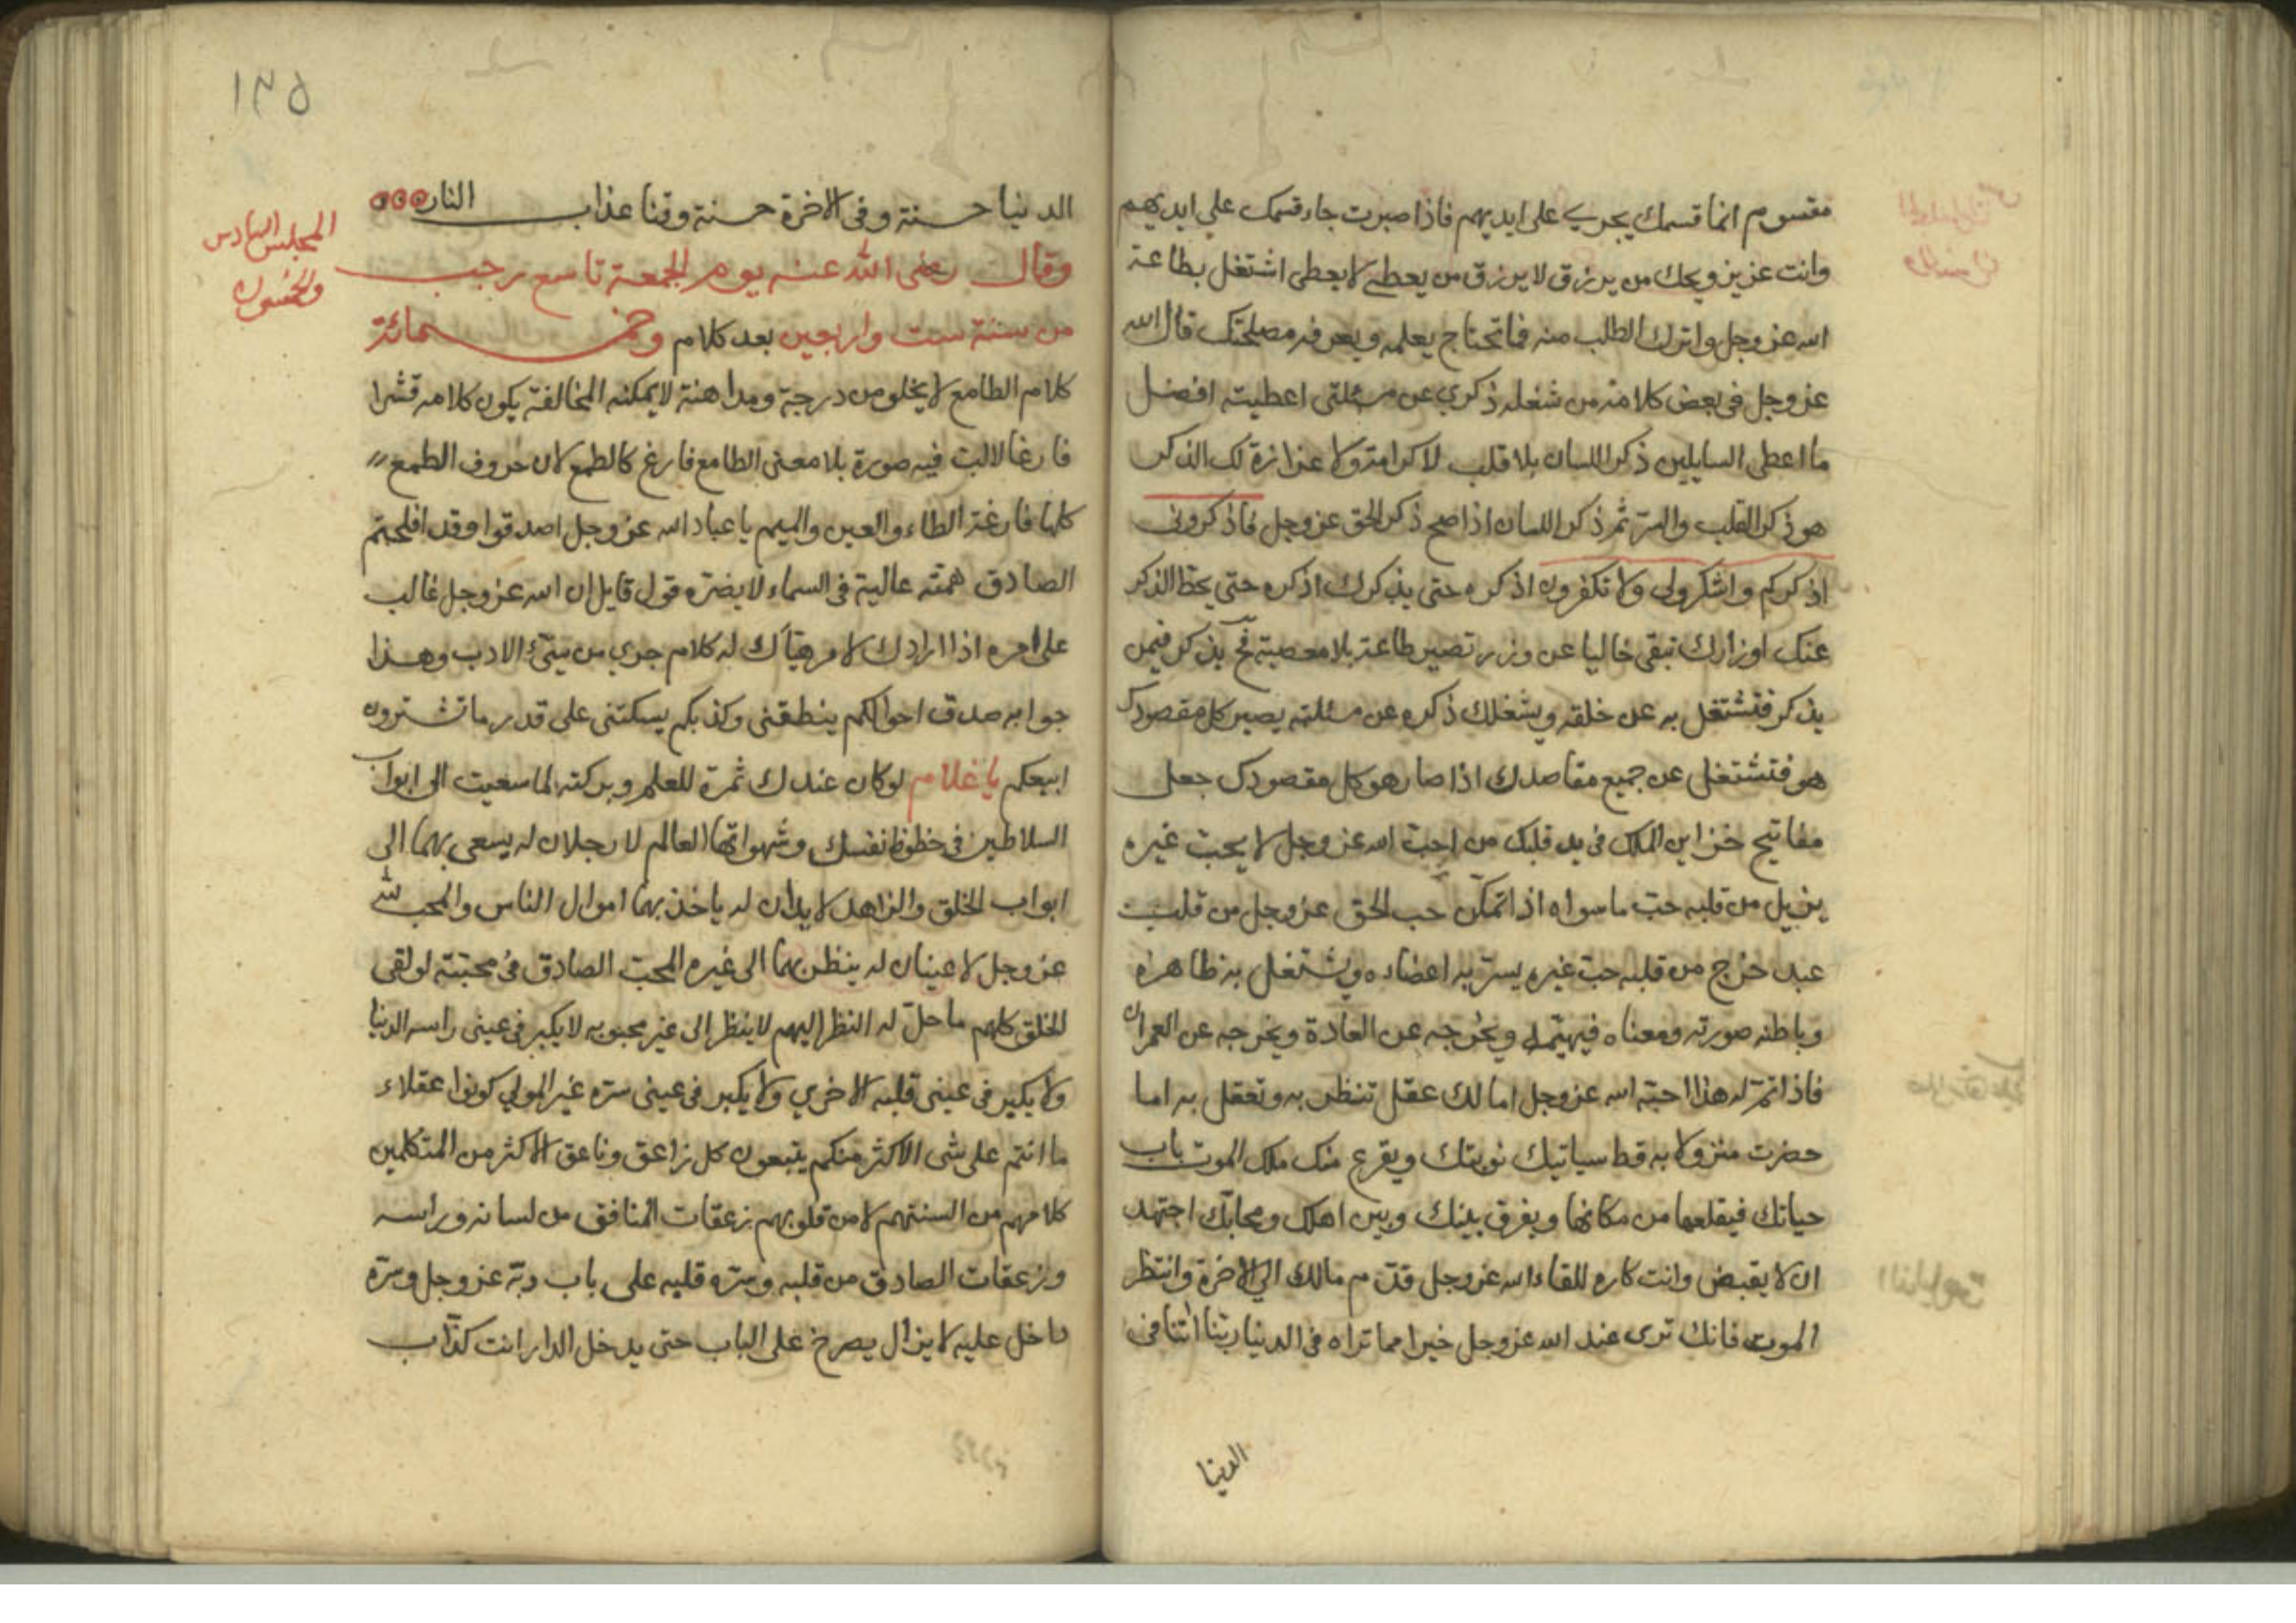 مقسوم انما قسمك يجري على ايديهم فاذا صبرت جاء قسمك علي ايديهم
وانت عزيز ويحك من يرزق لا يرزق من يعطي لا يعطى اشتغل بطاعة
الله عز وجل واترك الطلب منه فما تحتاج يعلمه ويعرفه مصلحتك قال الله
عز وجل في بعض كلامه من شغله ذكري عن مسئلتى اعطيته افضل
ما اعطى السايلين ذكر اللسان بلا قلب لا كرامة ولا عزازة لك الذكر
هو ذكر القلب والسر ثم ذكر اللسان اذا صح ذكر الحق عز وجل فاذكرونى
اذكركم واشكرولى ولا تكفرون اذكره حتى يذكرك اذكره حتى يحط الذكر
عنك اوزارك تبقى خاليا عن وزر تصير طاعة بلا معصية فح يذكر فيمن
يذكر فتشتغل به عن خلقه ويشغلك ذكره عن مسئلته يصير كل مقصودك
هو فتشتغل عن جميع مقاصدك اذا صار هو كل مقصودك جعل
مفاتيح خزاين الملك فى يد قلبك من احب الله عز وجل لا يحب غيره
يزيل من قلبه حب ما سواه اذا تمكن حب الحق عز وجل من قلب
عبد خرج من قلبه حب غيره يسر به اعضاءه ويشتغل به ظاهره
وباطنه صورته ومعناه فيهيمه ويخرجه عن العادة ويخرجه عن العمران
فاذا تم له هذا احبه الله عز وجل اما لك عقل تنظر به وتعقل به اما
حضرت منزولا به قط سياتيك نوبتك ويقرع منك ملك الموت باب
حياتك فيقلعها من مكانها ويفرق بينك وبين اهلك ومحابك اجتهد
ان لا يقبض وانت كاره للقاء الله عز وجل قدم مالك الي الاخرة وانتظر
الموت فانك ترى عند الله عز وجل خيرا مما تراه في الدنيا ربنا اتنا فى
الدنيا
١٣٥
الدنيا حسنة وفى الاخرة حسنة وقنا عذاب النار
المجلس السادس
والخمسون
وقال رضى الله عنه يوم الجمعة تاسع رجب
من سنة ست واربعين بعد كلام وخمسمائة
كلام الطامع لا يخلو من درجة ومداهنة لا يمكنه المخالفة يكون كلامه قشرا
فارغا لا لب فيه صورة بلا معنى الطامع فارغ كالطمع لان حروف الطمع
كلها فارغة الطاء والعين والميم يا عباد الله عز وجل اصدقوا وقد افلحتم
الصادق همته عالية في السماء لا يضره قول قايل ان الله عز وجل غالب
على امره اذا ارادك لامر هيأك له كلام جري من سيئ الادب وهذا
جوابه صدق احوالكم ينطقنى وكذبكم يسكتنى على قدر ما تشترون
ابيعكم يا غلام لو كان عندك ثمرة للعلم وبركته لما سعيت الى ابواب
السلاطين فى حظوظ نفسك وشهواتها العالم لا رجلان له يسعى بهما الى
ابواب الخلق والزاهد لا يدان له ياخذ بهما اموال الناس والمحب لله
عز وجل لا عينان له ينظر بهما الى غيره المحب الصادق فى محبته لو لقى
الخلق كلهم ما حل له النظر اليهم لا ينظر الى غير محبوبه لا يكبر فى عينى راسه الدنيا
ولا يكبر فى عينى قلبه الاخري ولا يكبر فى عينى سره غير المولي كونوا عقلاء
ما انتم على شى الاكثر منكم يتبعون كل زاعق وناعق الاكثر من المتكلمين
كلامهم من السنتهم لا من قلوبهم زعقات المنافق من لسانه وراسه
وزعقات الصادق من قلبه وسره قلبه على باب ربه عز وجل وسره
داخل عليه لا يزال يصرخ على الباب حتى يدخل الدار انت كذاب